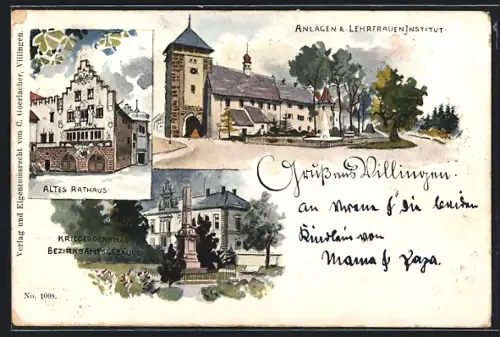 ANLAGEN & LEHRFRAUEN INSTITUT.
Verlag und Eigentumsrecht von C. Goerlacher, Villingen.
ALTES RATHAUS
Gruß aus Villingen.
An Verene & die beiden
Kindlein von
Mama & Papa.
KRIEGERDENKMAL
BEZIRKSAMTSGEBÄUDE
No. 1008.